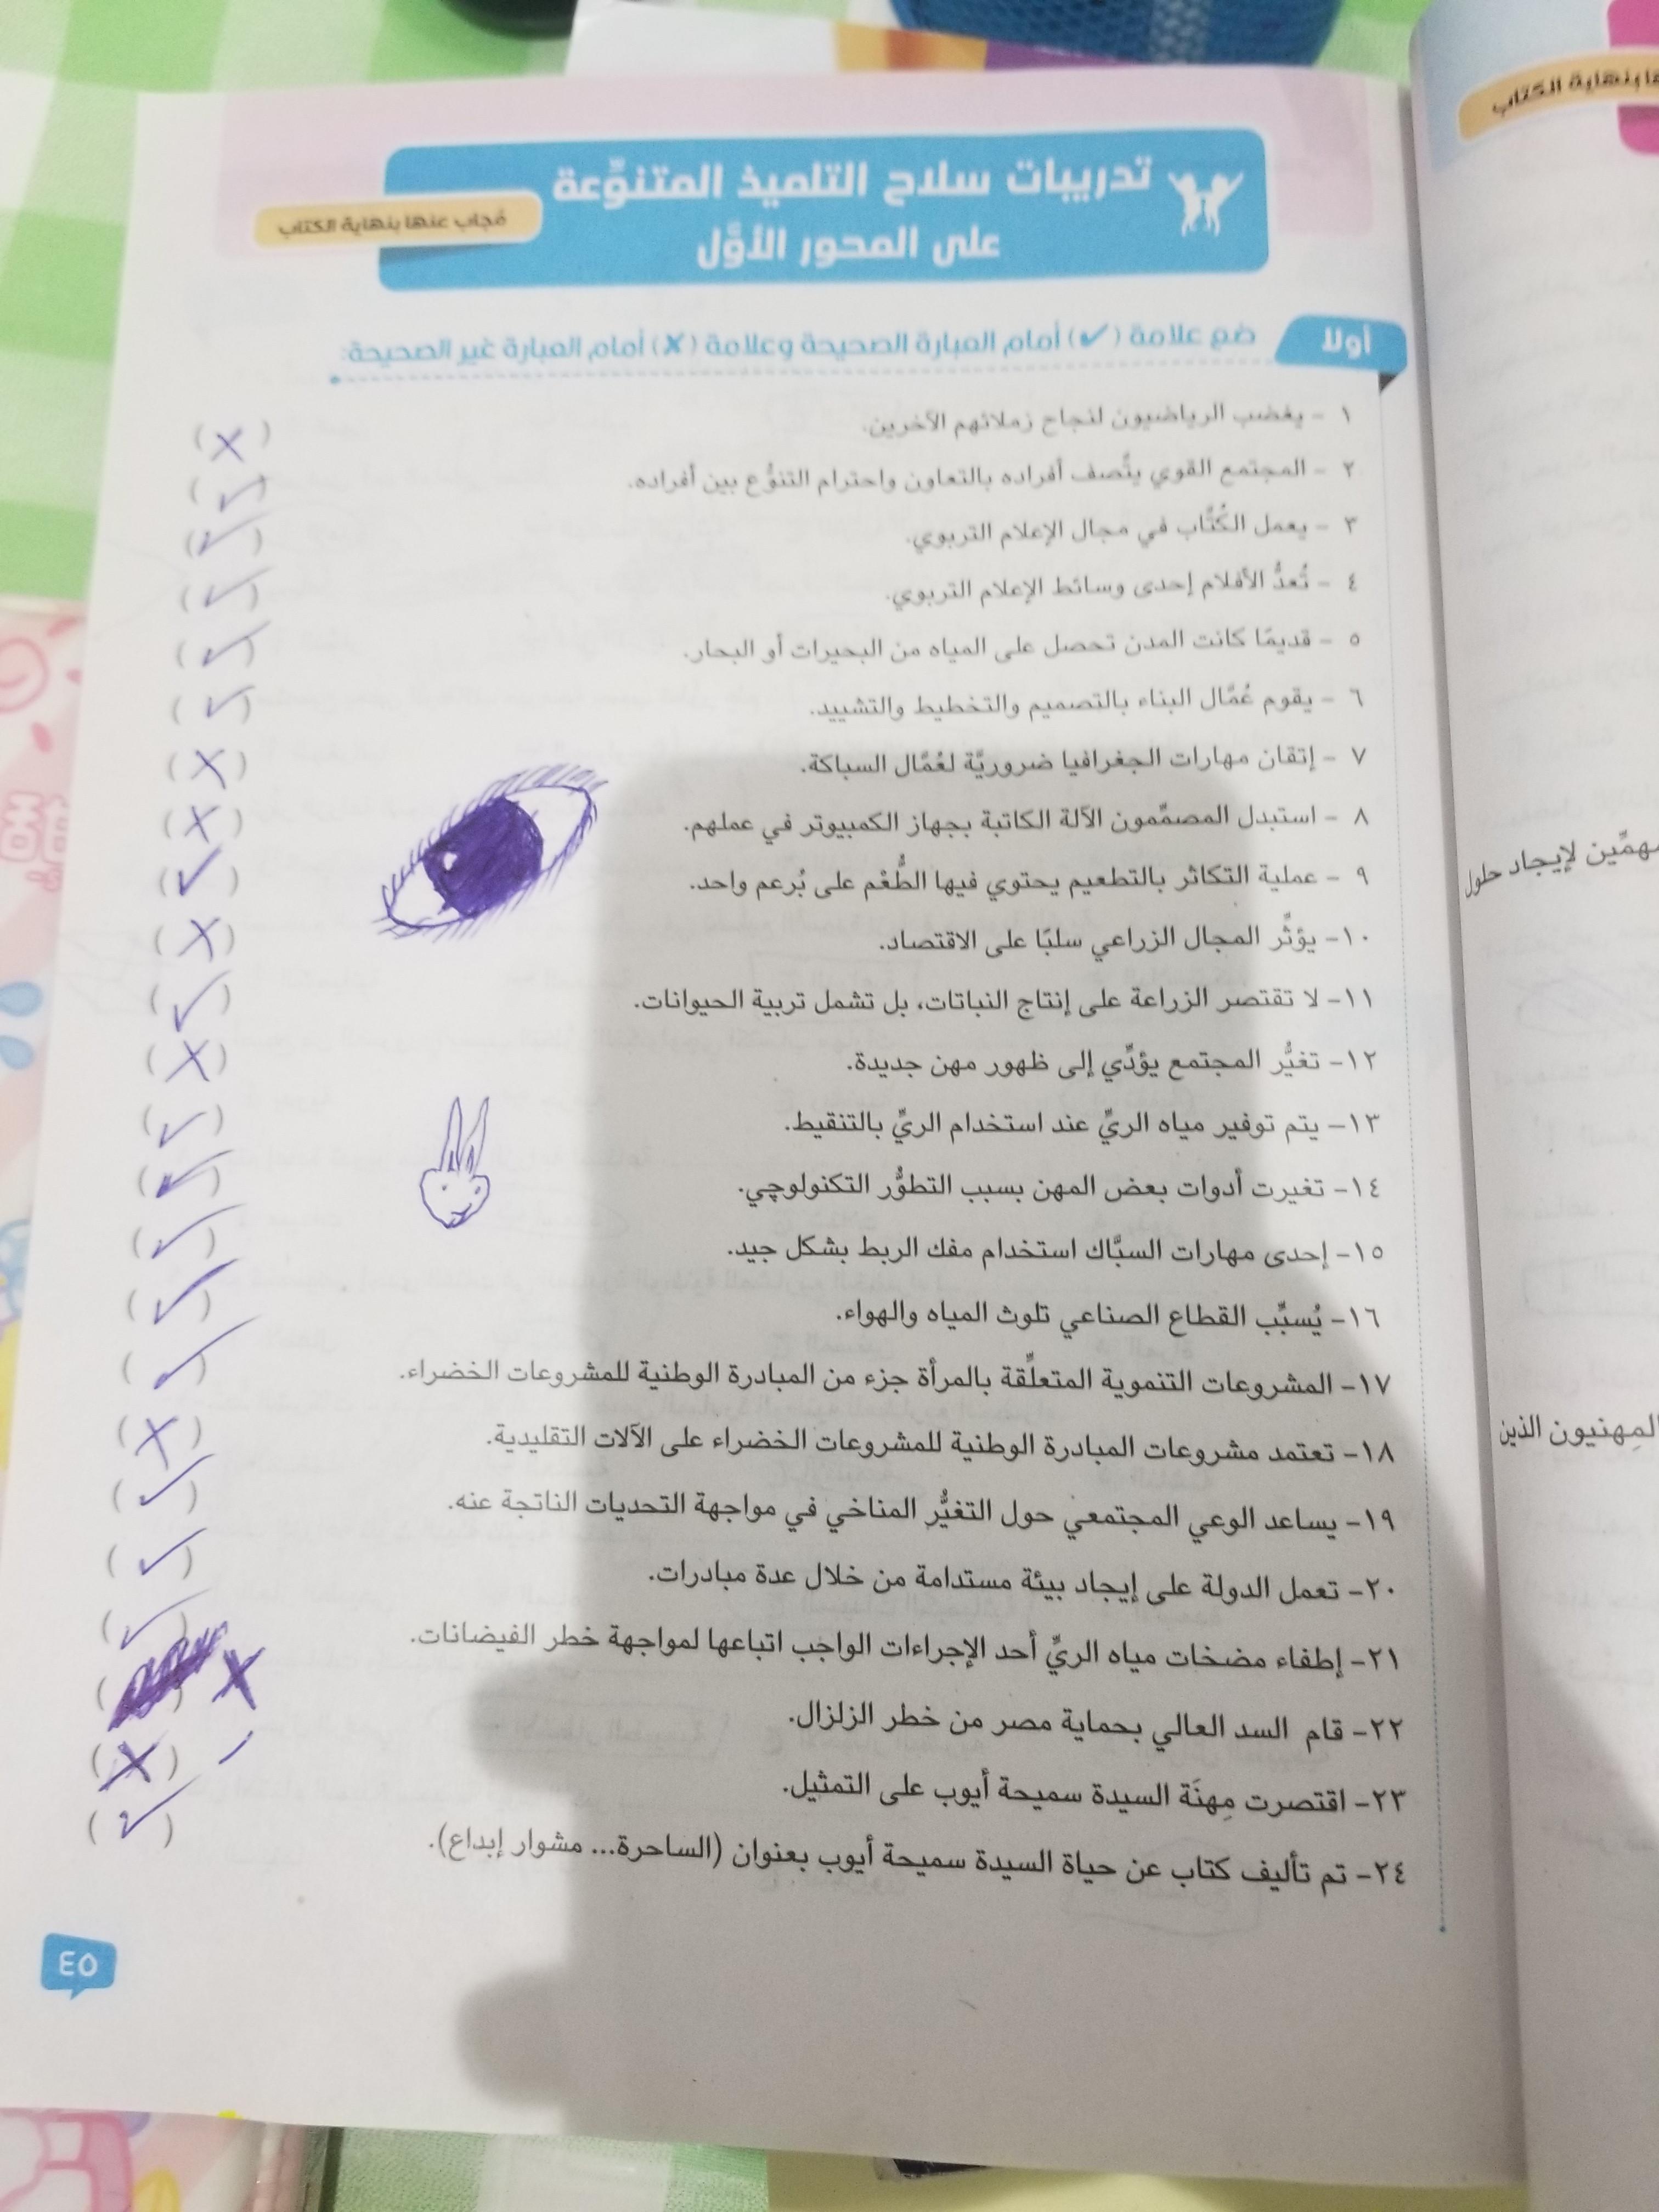 تدريبات سلاح التلميذ المتنوِّعة
على المحور الأوَّل
مُجاب عنها بنهاية الكتاب
أولًا
ضع علامة (✔) أمام العبارة الصحيحة وعلامة (✘) أمام العبارة غير الصحيحة:
١ - يغضب الرياضيون لنجاح زملائهم الآخرين. (✗)
٢ - المجتمع القوي يتَّصف أفراده بالتعاون واحترام التنوُّع بين أفراده. (✓)
٣ - يعمل الكُتَّاب في مجال الإعلام التربوي. (✓)
٤ - تُعدُّ الأفلام إحدى وسائط الإعلام التربوي. (✓)
٥ - قديمًا كانت المدن تحصل على المياه من البحيرات أو البحار. (✓)
٦ - يقوم عُمَّال البناء بالتصميم والتخطيط والتشييد. (✓)
٧ - إتقان مهارات الجغرافيا ضروريَّة لعُمَّال السباكة. (✗)
٨ - استبدل المصمِّمون الآلة الكاتبة بجهاز الكمبيوتر في عملهم. (✗)
٩ - عملية التكاثر بالتطعيم يحتوي فيها الطُّعْم على بُرعم واحد. (✓)
١٠- يؤثِّر المجال الزراعي سلبًا على الاقتصاد. (✗)
١١- لا تقتصر الزراعة على إنتاج النباتات، بل تشمل تربية الحيوانات. (✓)
١٢- تغيُّر المجتمع يؤدِّي إلى ظهور مهن جديدة. (✗)
١٣- يتم توفير مياه الريِّ عند استخدام الريِّ بالتنقيط. (✓)
١٤- تغيرت أدوات بعض المهن بسبب التطوُّر التكنولوچي. (✓)
١٥- إحدى مهارات السبَّاك استخدام مفك الربط بشكل جيد. (✓)
١٦- يُسبِّب القطاع الصناعي تلوث المياه والهواء. (✓)
١٧- المشروعات التنموية المتعلِّقة بالمرأة جزء من المبادرة الوطنية للمشروعات الخضراء. (✓)
١٨- تعتمد مشروعات المبادرة الوطنية للمشروعات الخضراء على الآلات التقليدية. (✗)
١٩- يساعد الوعي المجتمعي حول التغيُّر المناخي في مواجهة التحديات الناتجة عنه. (✓)
٢٠- تعمل الدولة على إيجاد بيئة مستدامة من خلال عدة مبادرات. (✓)
٢١- إطفاء مضخات مياه الريِّ أحد الإجراءات الواجب اتباعها لمواجهة خطر الفيضانات. (✓)
٢٢- قام السد العالي بحماية مصر من خطر الزلزال. ( ) ✗
٢٣- اقتصرت مِهنَة السيدة سميحة أيوب على التمثيل. (✗)
٢٤- تم تأليف كتاب عن حياة السيدة سميحة أيوب بعنوان (الساحرة... مشوار إبداع). (✓)
٤٥
بنهاية الكتاب
لإيجاد حلول
المِهنيون الذين